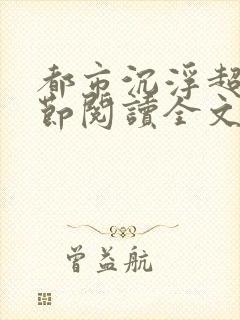 都市沉浮超
節閱讀全文
曾益航